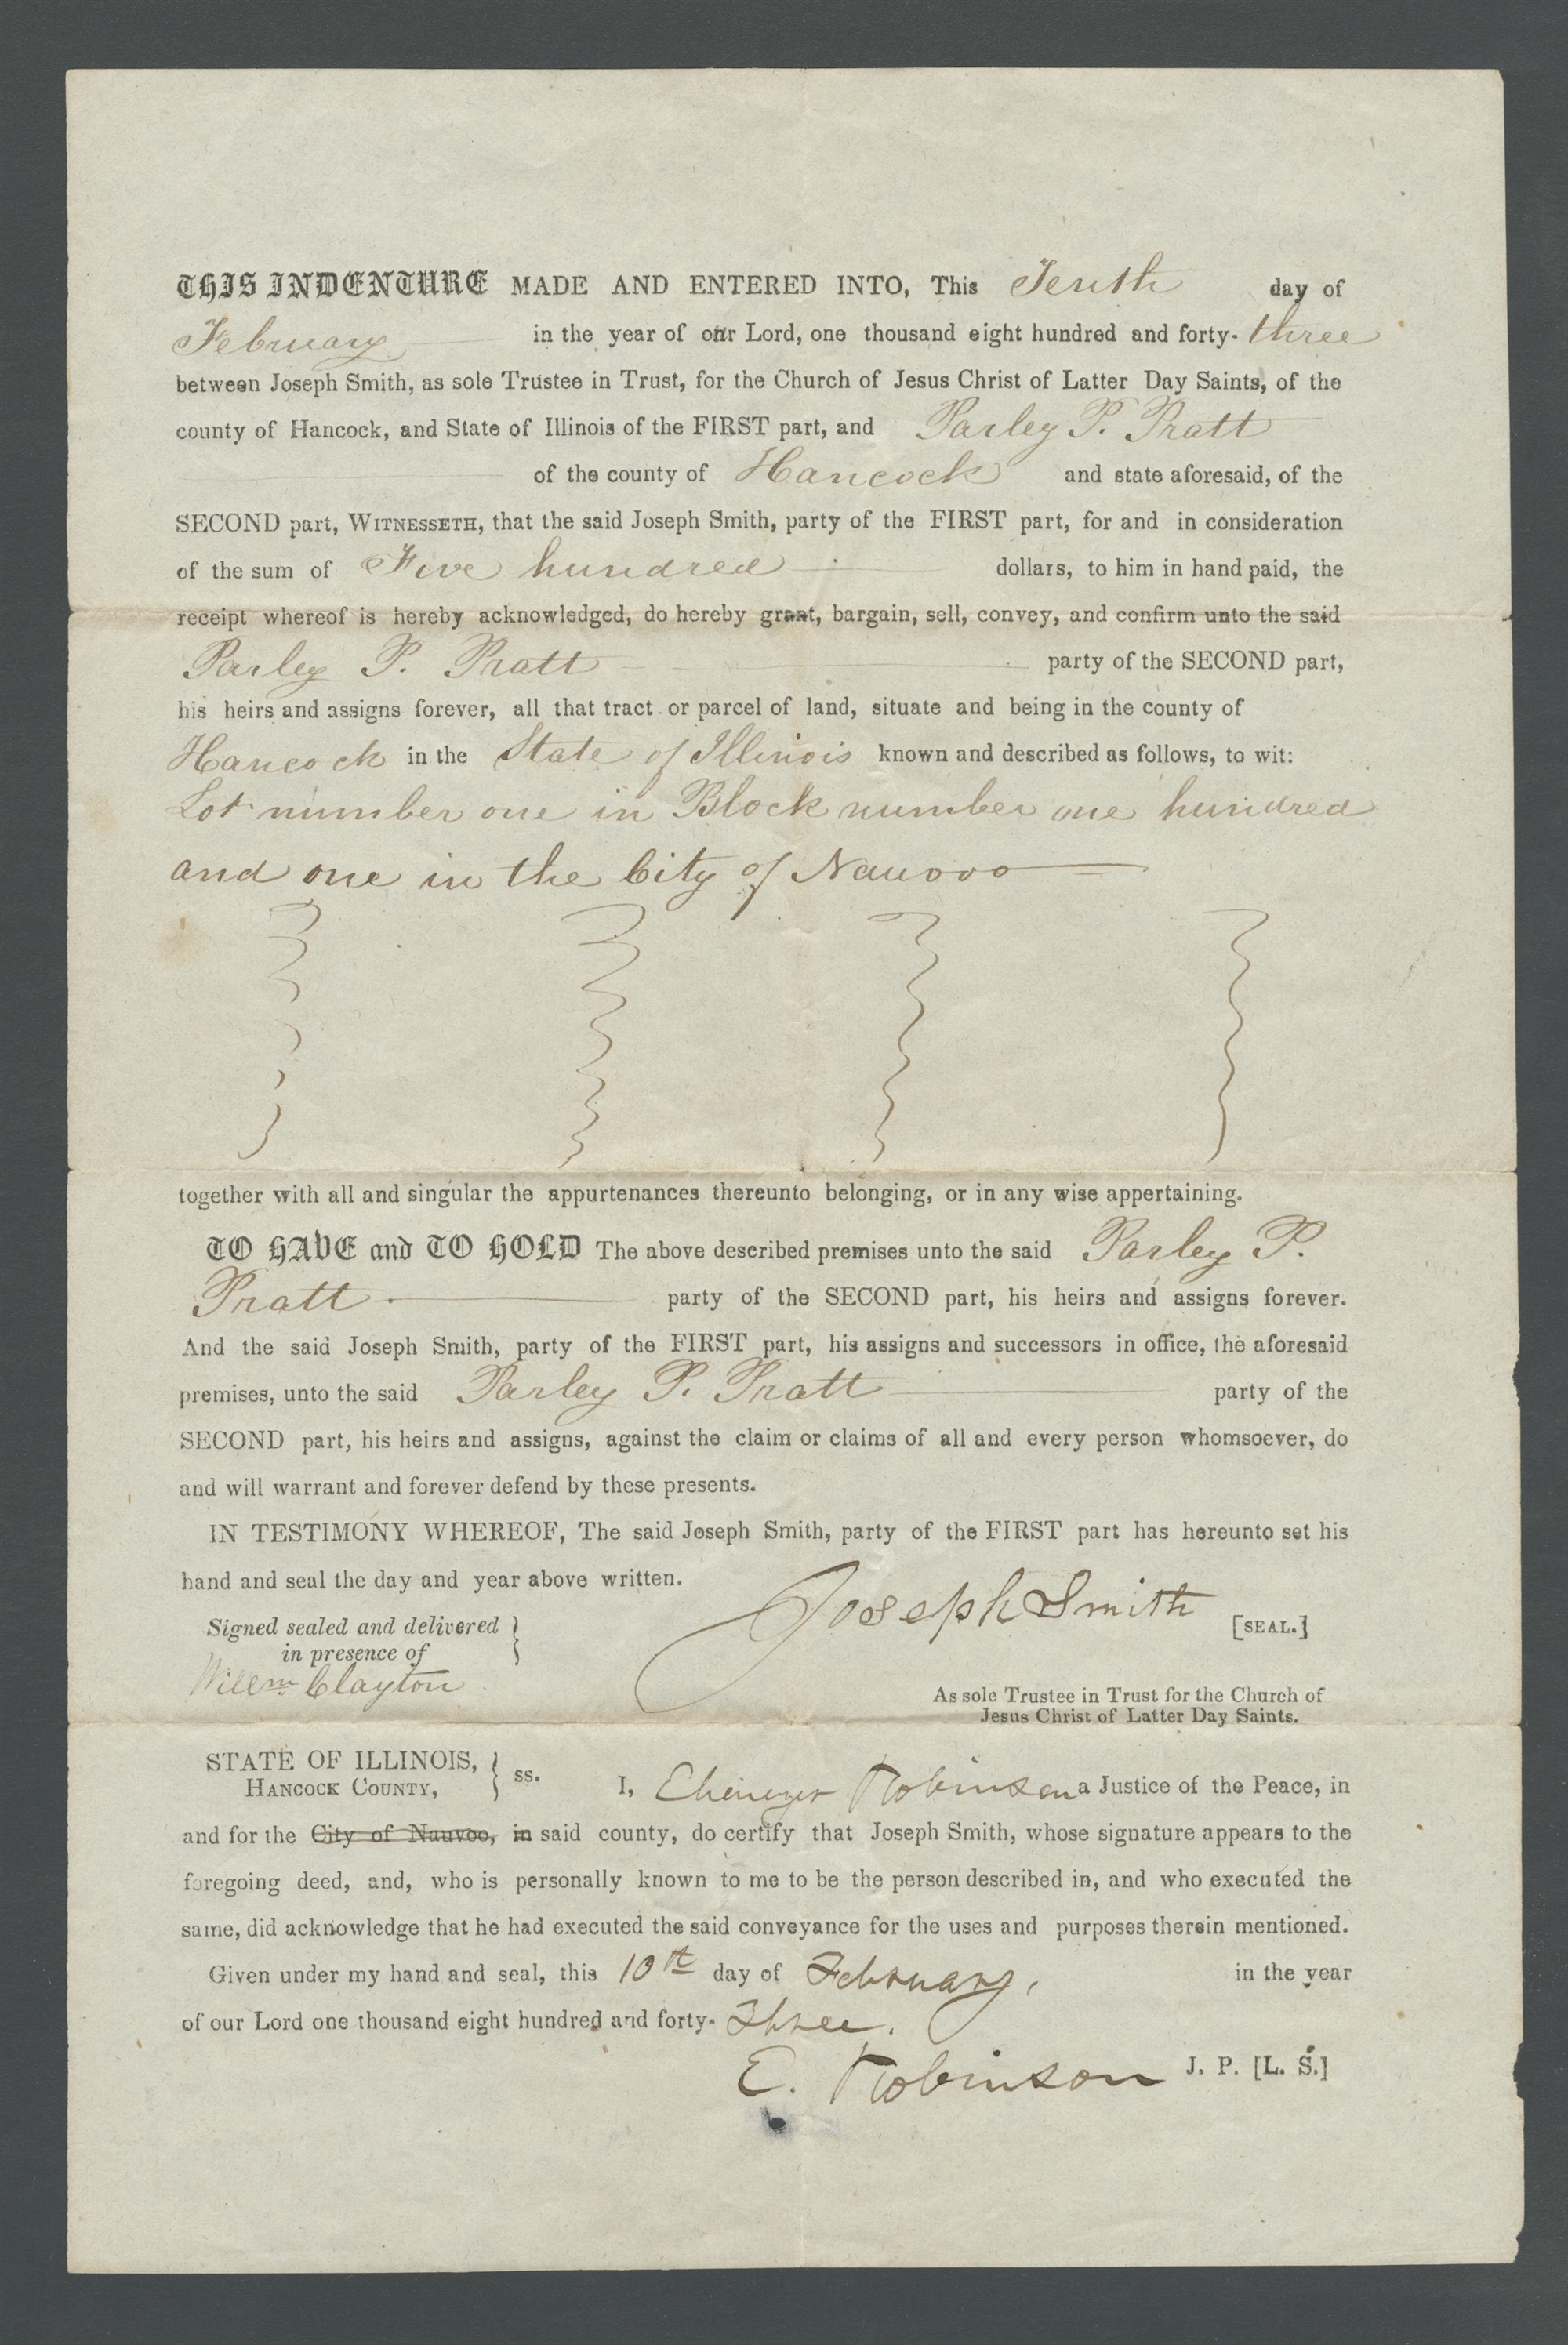 THIS INDENTURE MADE AND ENTERED INTO, This Tenth day of
February in the year of our Lord, one thousand eight hundred and forty-three
between Joseph Smith, as sole Trustee in Trust, for the Church of Jesus Christ of Latter Day Saints, of the
county of Hancock, and State of Illinois of the FIRST part, and Parley P. Pratt
of the county of Hancock and state aforesaid, of the
SECOND part, WITNESSETH, that the said Joseph Smith, party of the FIRST part, for and in consideration
of the sum of Five hundred dollars, to him in hand paid, the
receipt whereof is hereby acknowledged, do hereby grant, bargain, sell, convey, and confirm unto the said
Parley P. Pratt party of the SECOND part,
his heirs and assigns forever, all that tract or parcel of land, situate and being in the county of
Hancock in the State of Illinois known and described as follows, to wit:
Lot number one in Block number one hundred
and one in the City of Nauvoo
together with all and singular the appurtenances thereunto belonging, or in any wise appertaining.
TO HAVE and TO HOLD The above described premises unto the said Parley P.
Pratt party of the SECOND part, his heirs and assigns forever.
And the said Joseph Smith, party of the FIRST part, his assigns and successors in office, the aforesaid
premises, unto the said Parley P. Pratt party of the
SECOND part, his heirs and assigns, against the claim or claims of all and every person whomsoever, do
and will warrant and forever defend by these presents.
IN TESTIMONY WHEREOF, The said Joseph Smith, party of the FIRST part has hereunto set his
hand and seal the day and year above written.
Joseph Smith [SEAL.]
Signed sealed and delivered
in presence of
Willm Clayton
As sole Trustee in Trust for the Church of
Jesus Christ of Latter Day Saints.
STATE OF ILLINOIS,
HANCOCK COUNTY, } ss. I, Ebenezer Robinson a Justice of the Peace, in
and for the City of Nauvoo, in said county, do certify that Joseph Smith, whose signature appears to the
foregoing deed, and, who is personally known to me to be the person described in, and who executed the
same, did acknowledge that he had executed the said conveyance for the uses and purposes therein mentioned.
Given under my hand and seal, this 10th day of February, in the year
of our Lord one thousand eight hundred and forty-Three.
E. Robinson J. P. [L. S.]